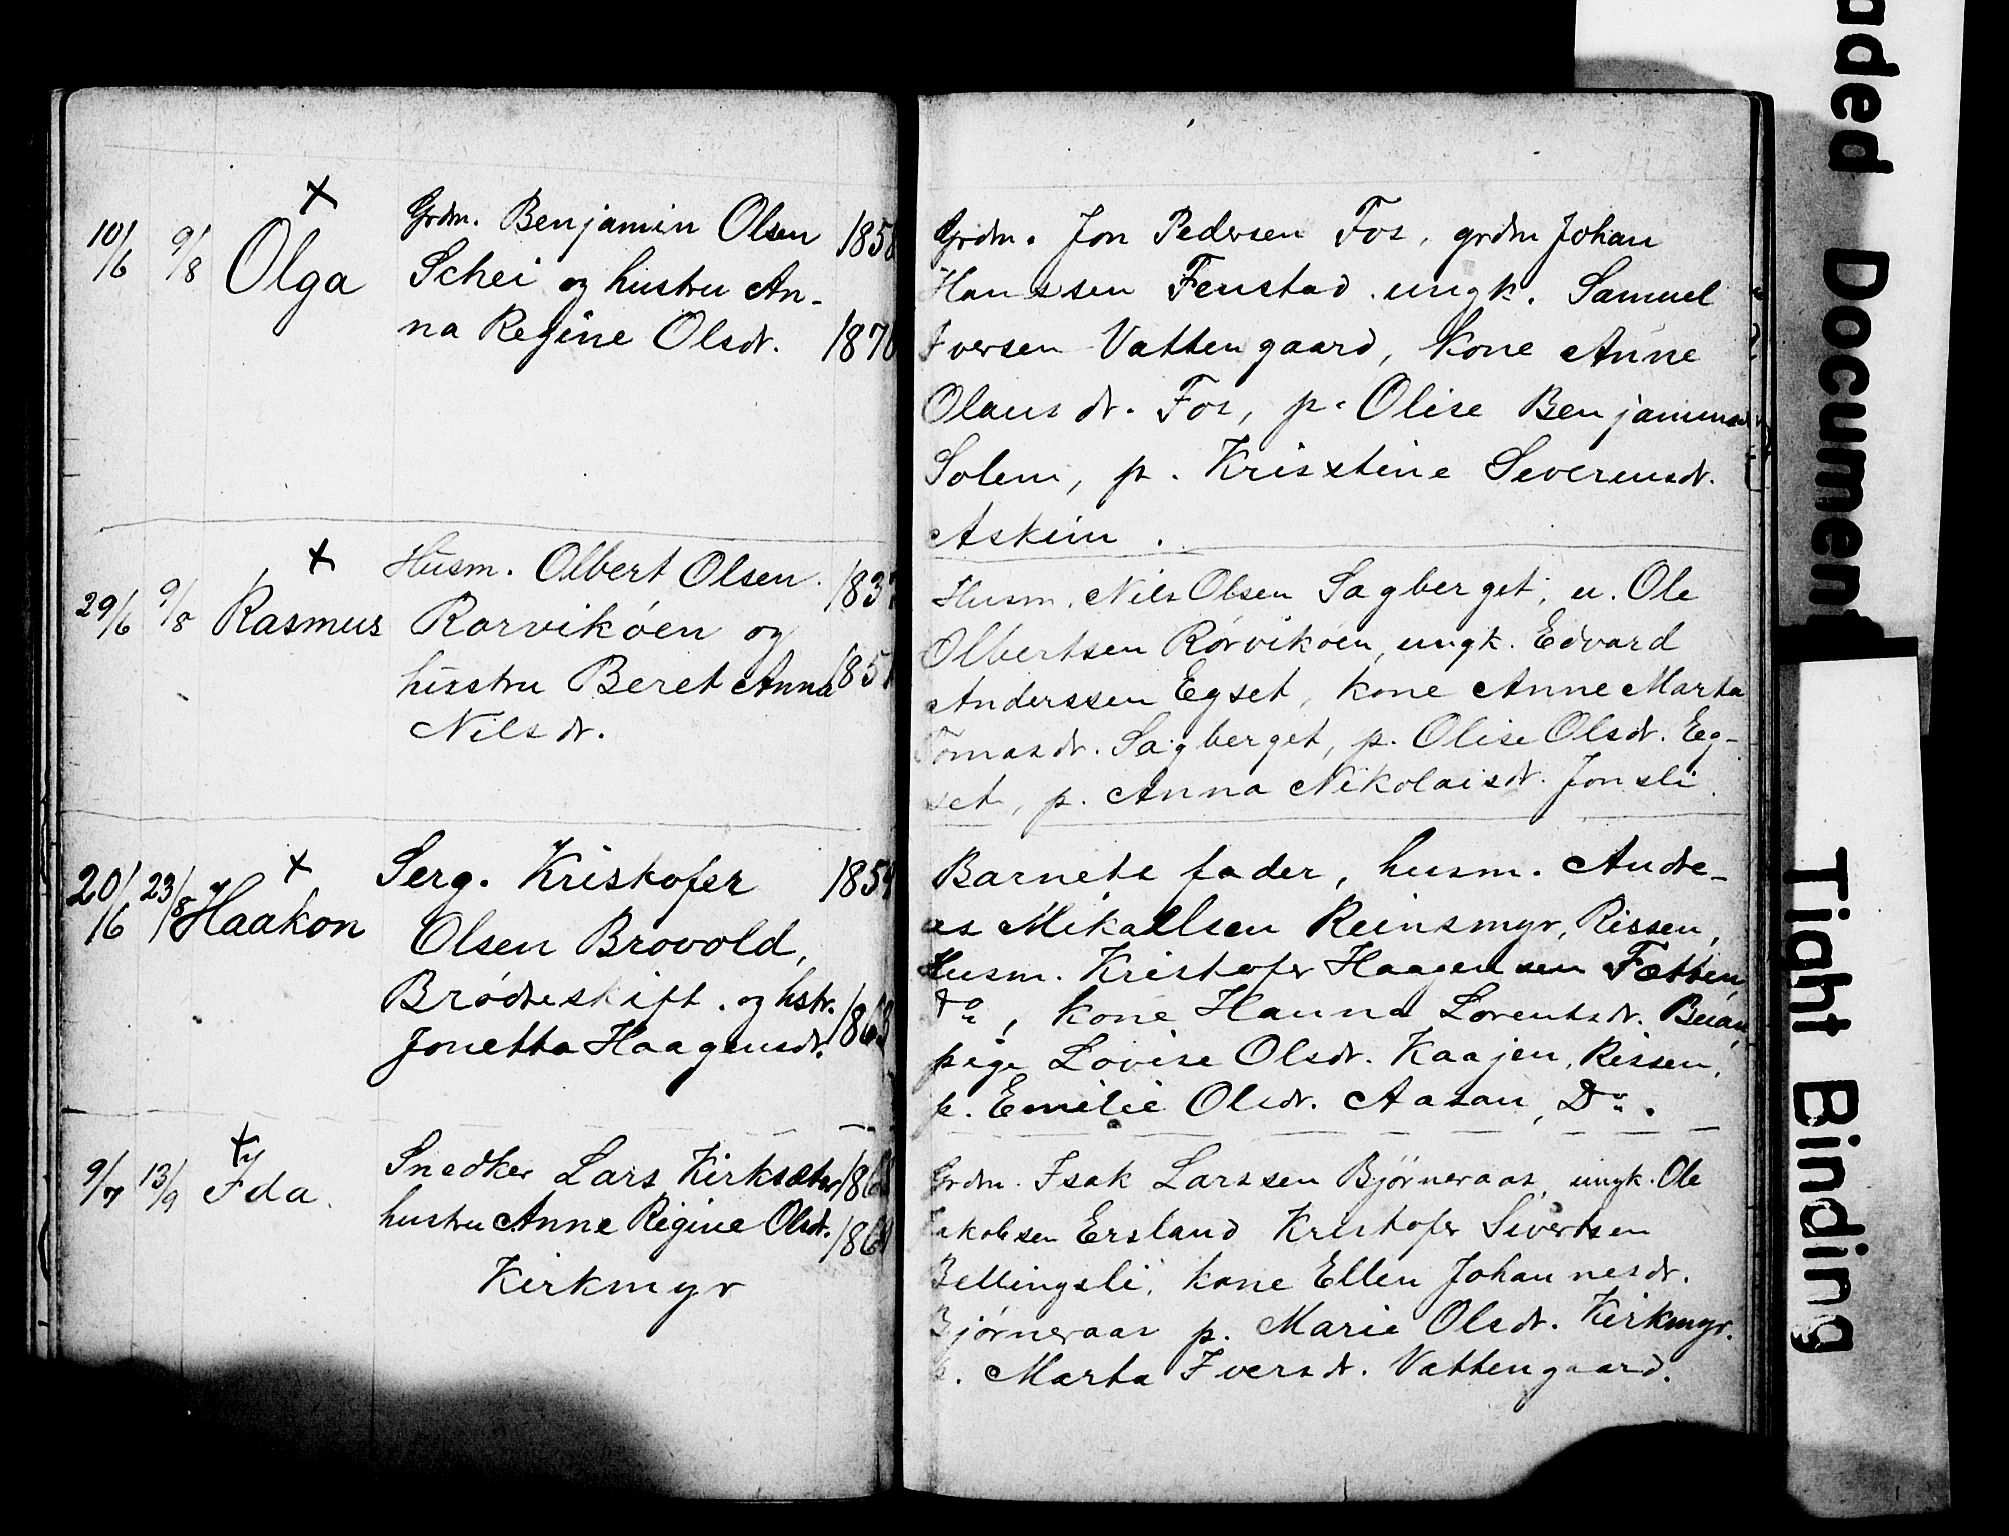 10/6 9/8 Olga
Grdm. Benjamin Olsen
Schei og hustru An-
na Regine Olsdr.
Grdm. Jon Pedersen Fos, grdm Johan
Hanssen Fenstad. ungk. Samuel
Iversen Vattengaard, kone Anne
Olausdr. Fos, p. Olise Benjaminsdr
Solem, p. Kristine Severinsdr.
Askim.
29/6 9/8 Rasmus
Husm. Olbert Olsen 1837
Rorvikóen og
hustru Beret Anna 1851
Nilsdr.
Husm. Nils Olsen Sagberget, u. Ole
Olbertsen Rórvikoen, ungk. Edvard
Anderssen Egset, kone Anne Marta
Tomasdr. Sagberget, p. Olise Olsdr. Eg-
set, p. Anna Nikolaisdr. Jonsli.
20/6 23/8 Haakon
Serg. Kristofer 1859
Olsen Brovold,
Bródreskift. og hstr. 1863
Jonetta Haagensdr.
Barnets fader, husm. Andre-
as Mikallsen Reinsmyr, Rissen,
Husm. Kristofer Haagensen Fætten,
do, kone Hanna Lorentsdr. Beian,
pige Lovise Olsdr. Kaajen, Rissen,
p. Emilie Olsdr. Aasan, Do.
9/7 13/9 Ida.
Snedker Lars Kirksæter
hustru Anne Regine Olsdr.
Kirkmyr
Grdm. Isak Larssen Bjørneraas, ungk. Ole
Jakobsen Ersland Kristofer Sivertsen
Bellingsli, kone Ellen Johannesdr.
Bjørneraas p. Marie Olsdr. Kirkmyr.
p. Marta Iversdr. Vattengaard.
aded Document
Tight Binding